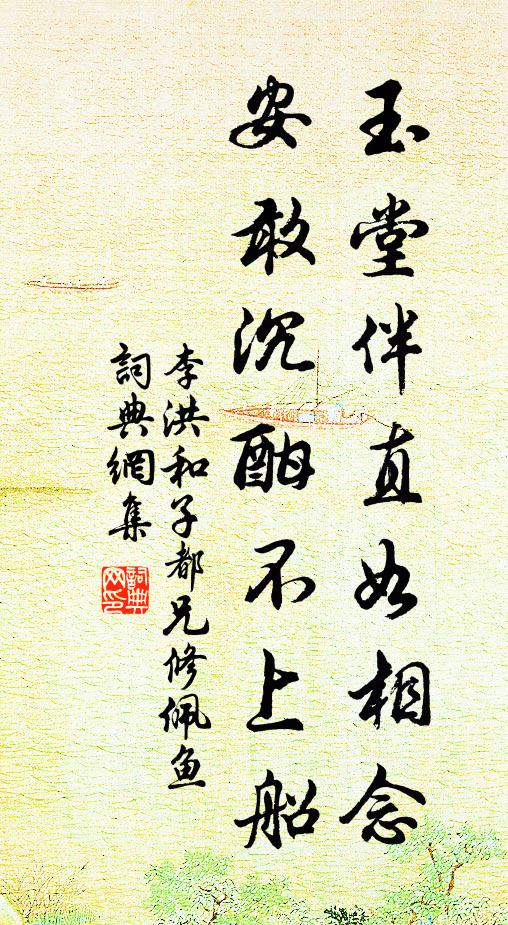 玉堂伴直如相念
安敢沉酣不上船
李洪和子都兄修佩鱼
詞典網集
詞典網印